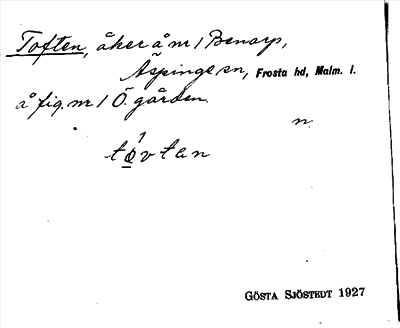 Toften, åker å nr 1 Benarp,
Äspinge sn, Frosta hd, Malm. l.
å fig. nr 1 Ö. gården.
n.
GÖSTA SJÖSTEDT 1927